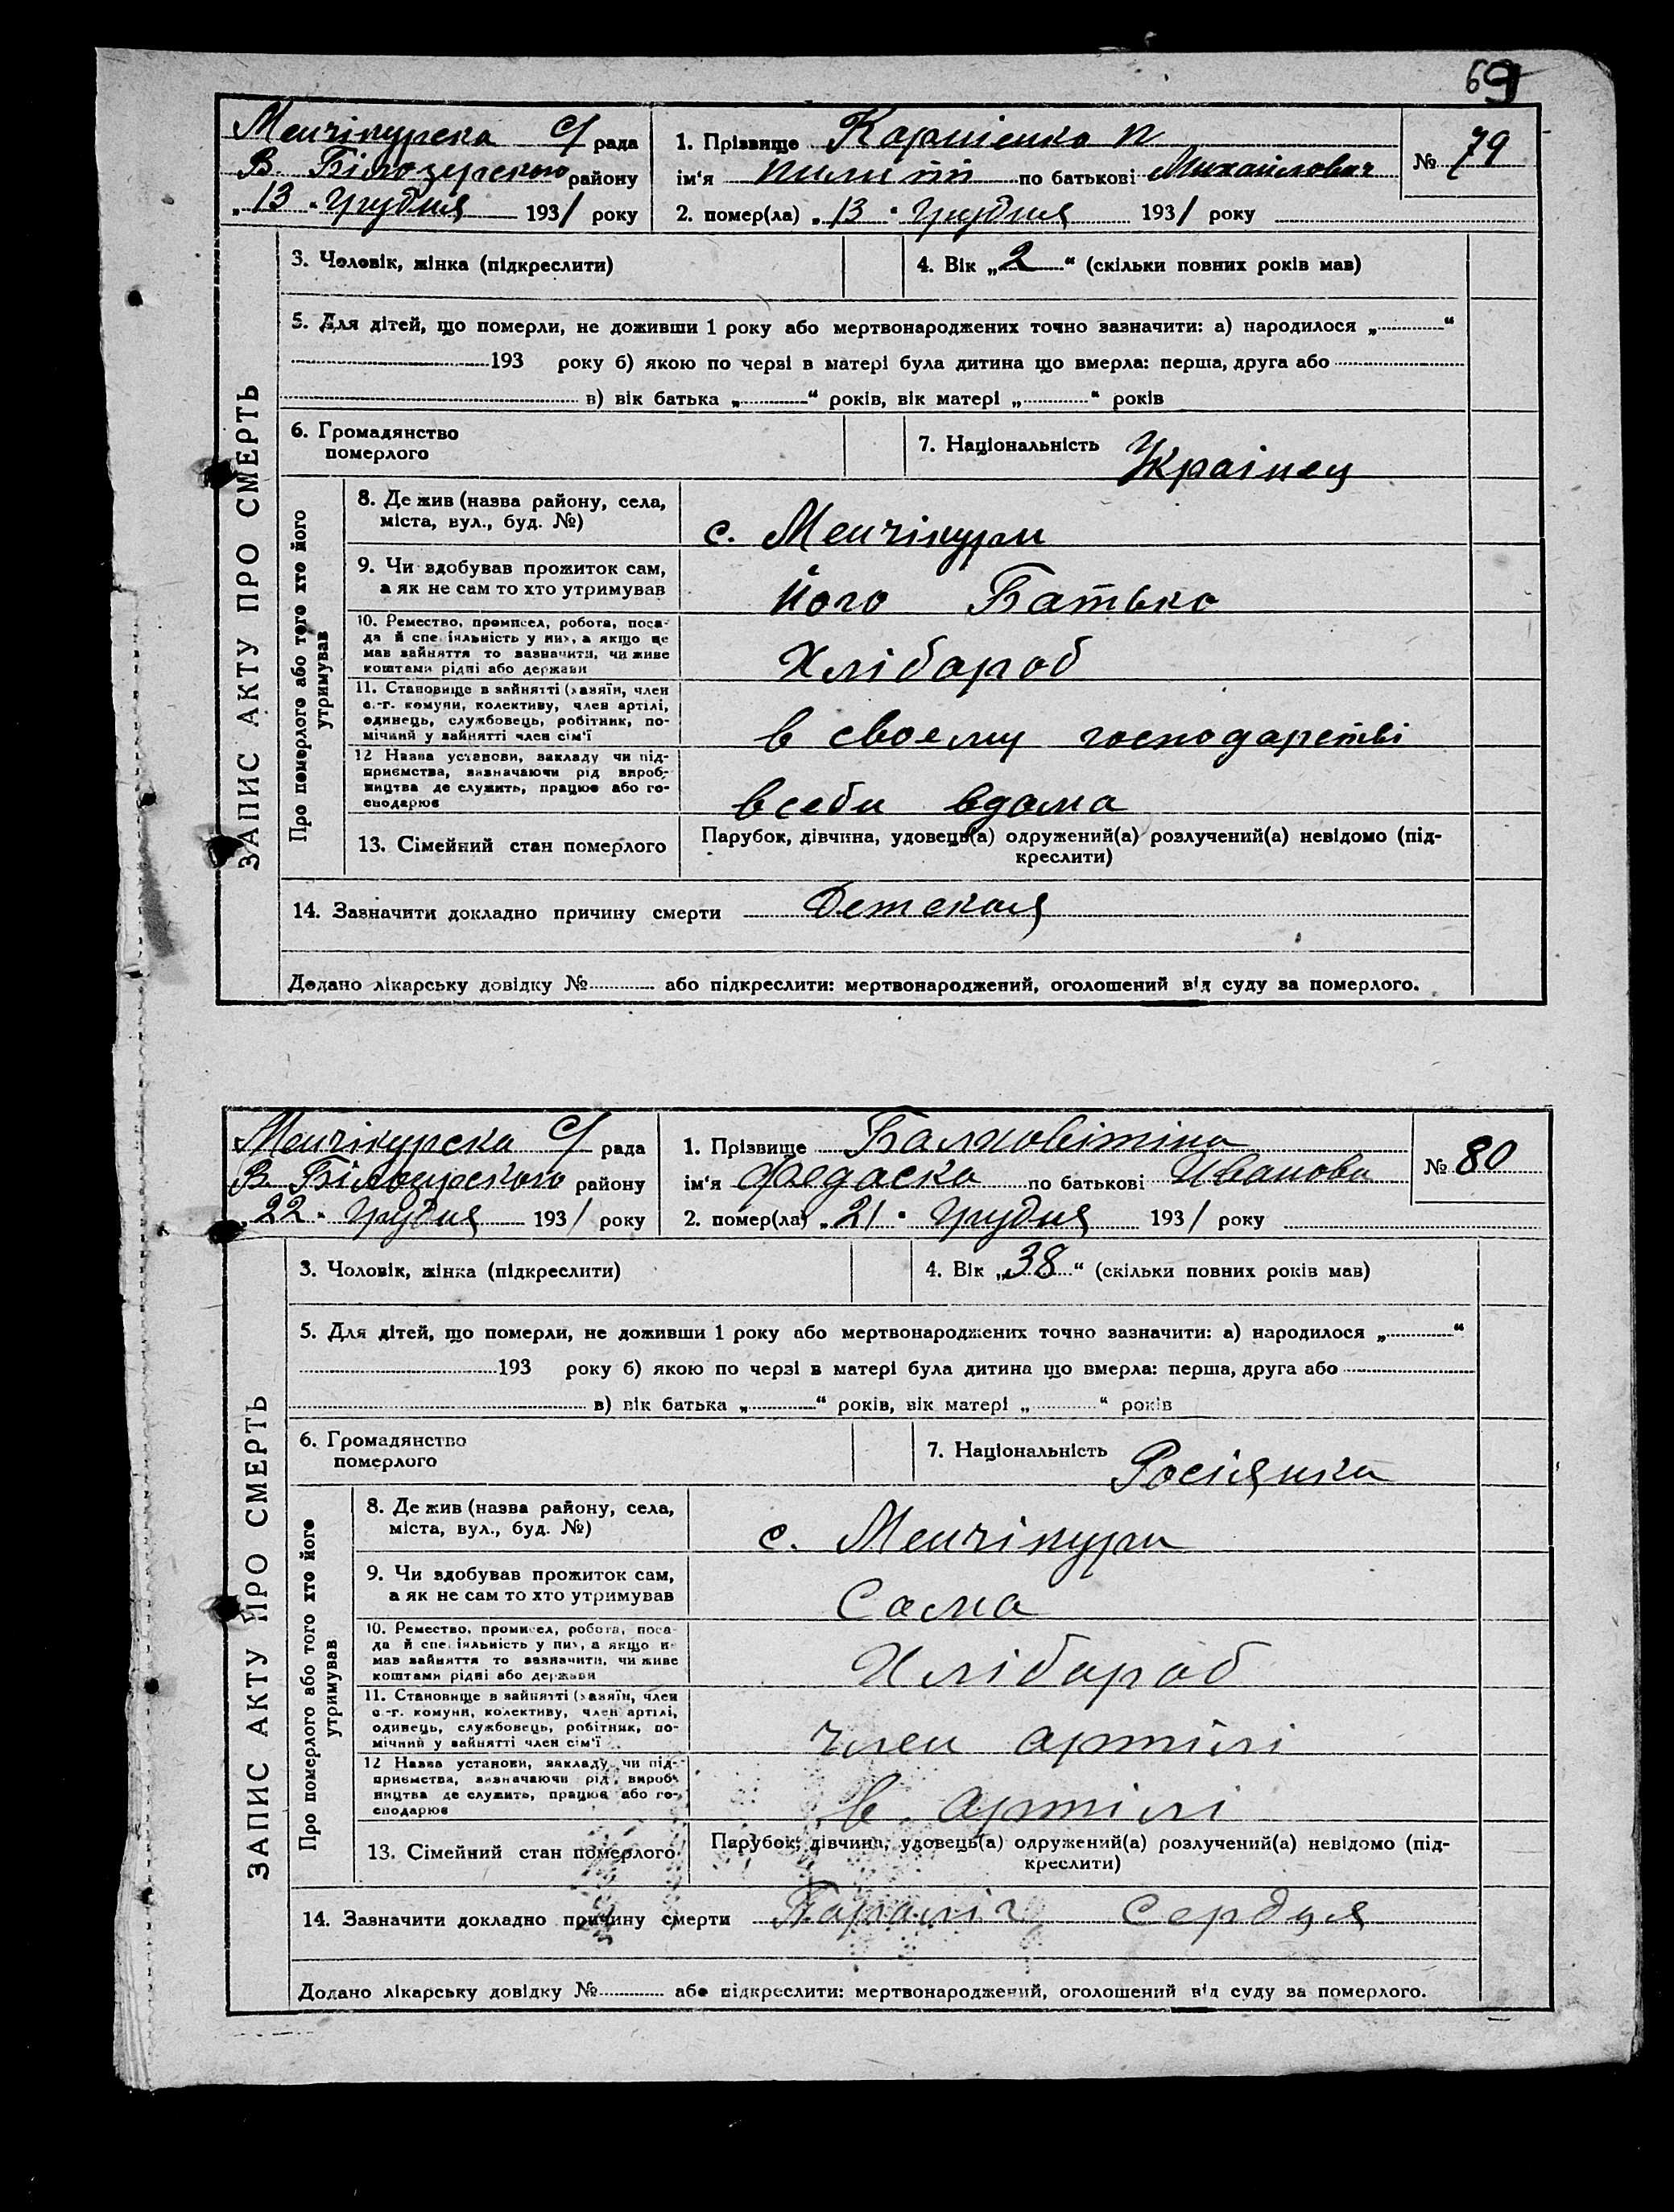 69
Менчікурска С/ рада
В. Білозерского району
„13“ Грудня 1931 року
1. Прізвище Карпіенко
ім'я по батькові Михайлович
2. помер(ла) „13“ Грудня 1931 року
№ 79
ЗАПИС АКТУ ПРО СМЕРТЬ
3. Чоловік, жінка (підкреслити)
4. Вік „2“ (скільки повних років мав)
5. Для дітей, що померли, не доживши 1 року або мертвонароджених точно зазначити: а) народилося „ “
193 року б) якою по черзі в матері була дитина що вмерла: перша, друга або
в) вік батька „ “ років, вік матері „ “ років
6. Громадянство
померлого
7. Національність Украінец
Про померлого або того хто його
утримував
8. Де жив (назва району, села,
міста, вул., буд. №)
с. Менчікури
9. Чи здобував прожиток сам,
а як не сам то хто утримував
його Батько
10. Ремество, промисел, робота, поса-
да й спеціяльність у них, а якщо не
мав зайняття то зазначити, чи живе
коштами рідні або держави
Хлібароб
11. Становище в зайнятті (хазяїн, член
с.-г. комуни, колективу, член артілі,
одинець, службовець, робітник, по-
мічний у зайнятті член сім'ї
в своему господарстві
12 Назва установи, закладу чи під-
приємства, визначаючи рід вироб-
ництва де служить, працює або го-
сподарює
всебе вдома
13. Сімейний стан померлого
Парубок, дівчина, удовець(а) одружений(а) розлучений(а) невідомо (під-
креслити)
14. Зазначити докладно причину смерти Детская
Додано лікарську довідку № або підкреслити: мертвонароджений, оголошений від суду за померлого.
Менчікурска С/ рада
В. Білозерского району
„22“ Грудня 1931 року
1. Прізвище Балковітіна
ім'я Федаска по батькові Иванова
2. помер(ла) „21“ Грудня 1931 року
№ 80
ЗАПИС АКТУ ПРО СМЕРТЬ
3. Чоловік, жінка (підкреслити)
4. Вік „38“ (скільки повних років мав)
5. Для дітей, що померли, не доживши 1 року або мертвонароджених точно зазначити: а) народилося „ “
193 року б) якою по черзі в матері була дитина що вмерла: перша, друга або
в) вік батька „ “ років, вік матері „ “ років
6. Громадянство
померлого
7. Національність Росіянка
Про померлого або того хто його
утримував
8. Де жив (назва району, села,
міста, вул., буд. №)
с. Менчікури
9. Чи здобував прожиток сам,
а як не сам то хто утримував
Сама
10. Ремество, промисел, робота, поса-
да й спеціяльність у них, а якщо н
мав зайняття то зазначити, чи живе
коштами рідні або держави
Хлібароб
11. Становище в зайнятті (хазяїн, член
с.-г. комуни, колективу, член артілі,
одинець, службовець, робітник, по-
мічний у зайнятті член сім'ї
член артілі
12 Назва установи, закладу чи під-
приємства, визначаючи рід вироб-
ництва де служить, працює або го-
сподарює
в артілі
13. Сімейний стан померлого
Парубок, дівчина, удовець(а) одружений(а) розлучений(а) невідомо (під-
креслити)
14. Зазначити докладно причину смерти Параліч Сердця
Додано лікарську довідку № або підкреслити: мертвонароджений, оголошений від суду за померлого.